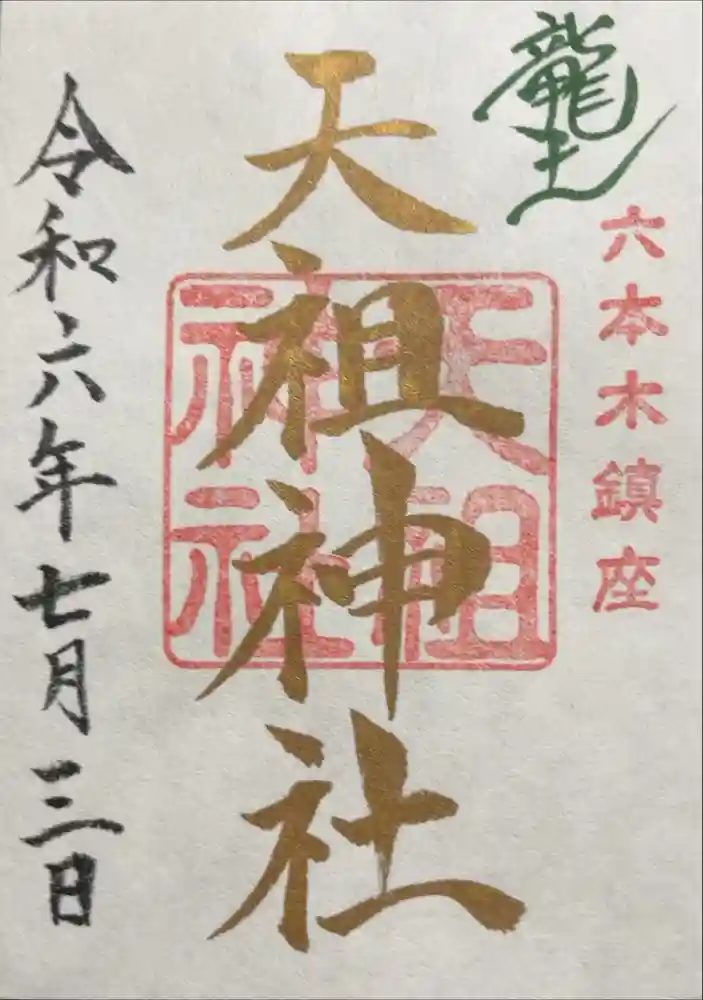 龍王
六本木鎮座
天祖神社
天祖
神社
令和六年七月三日